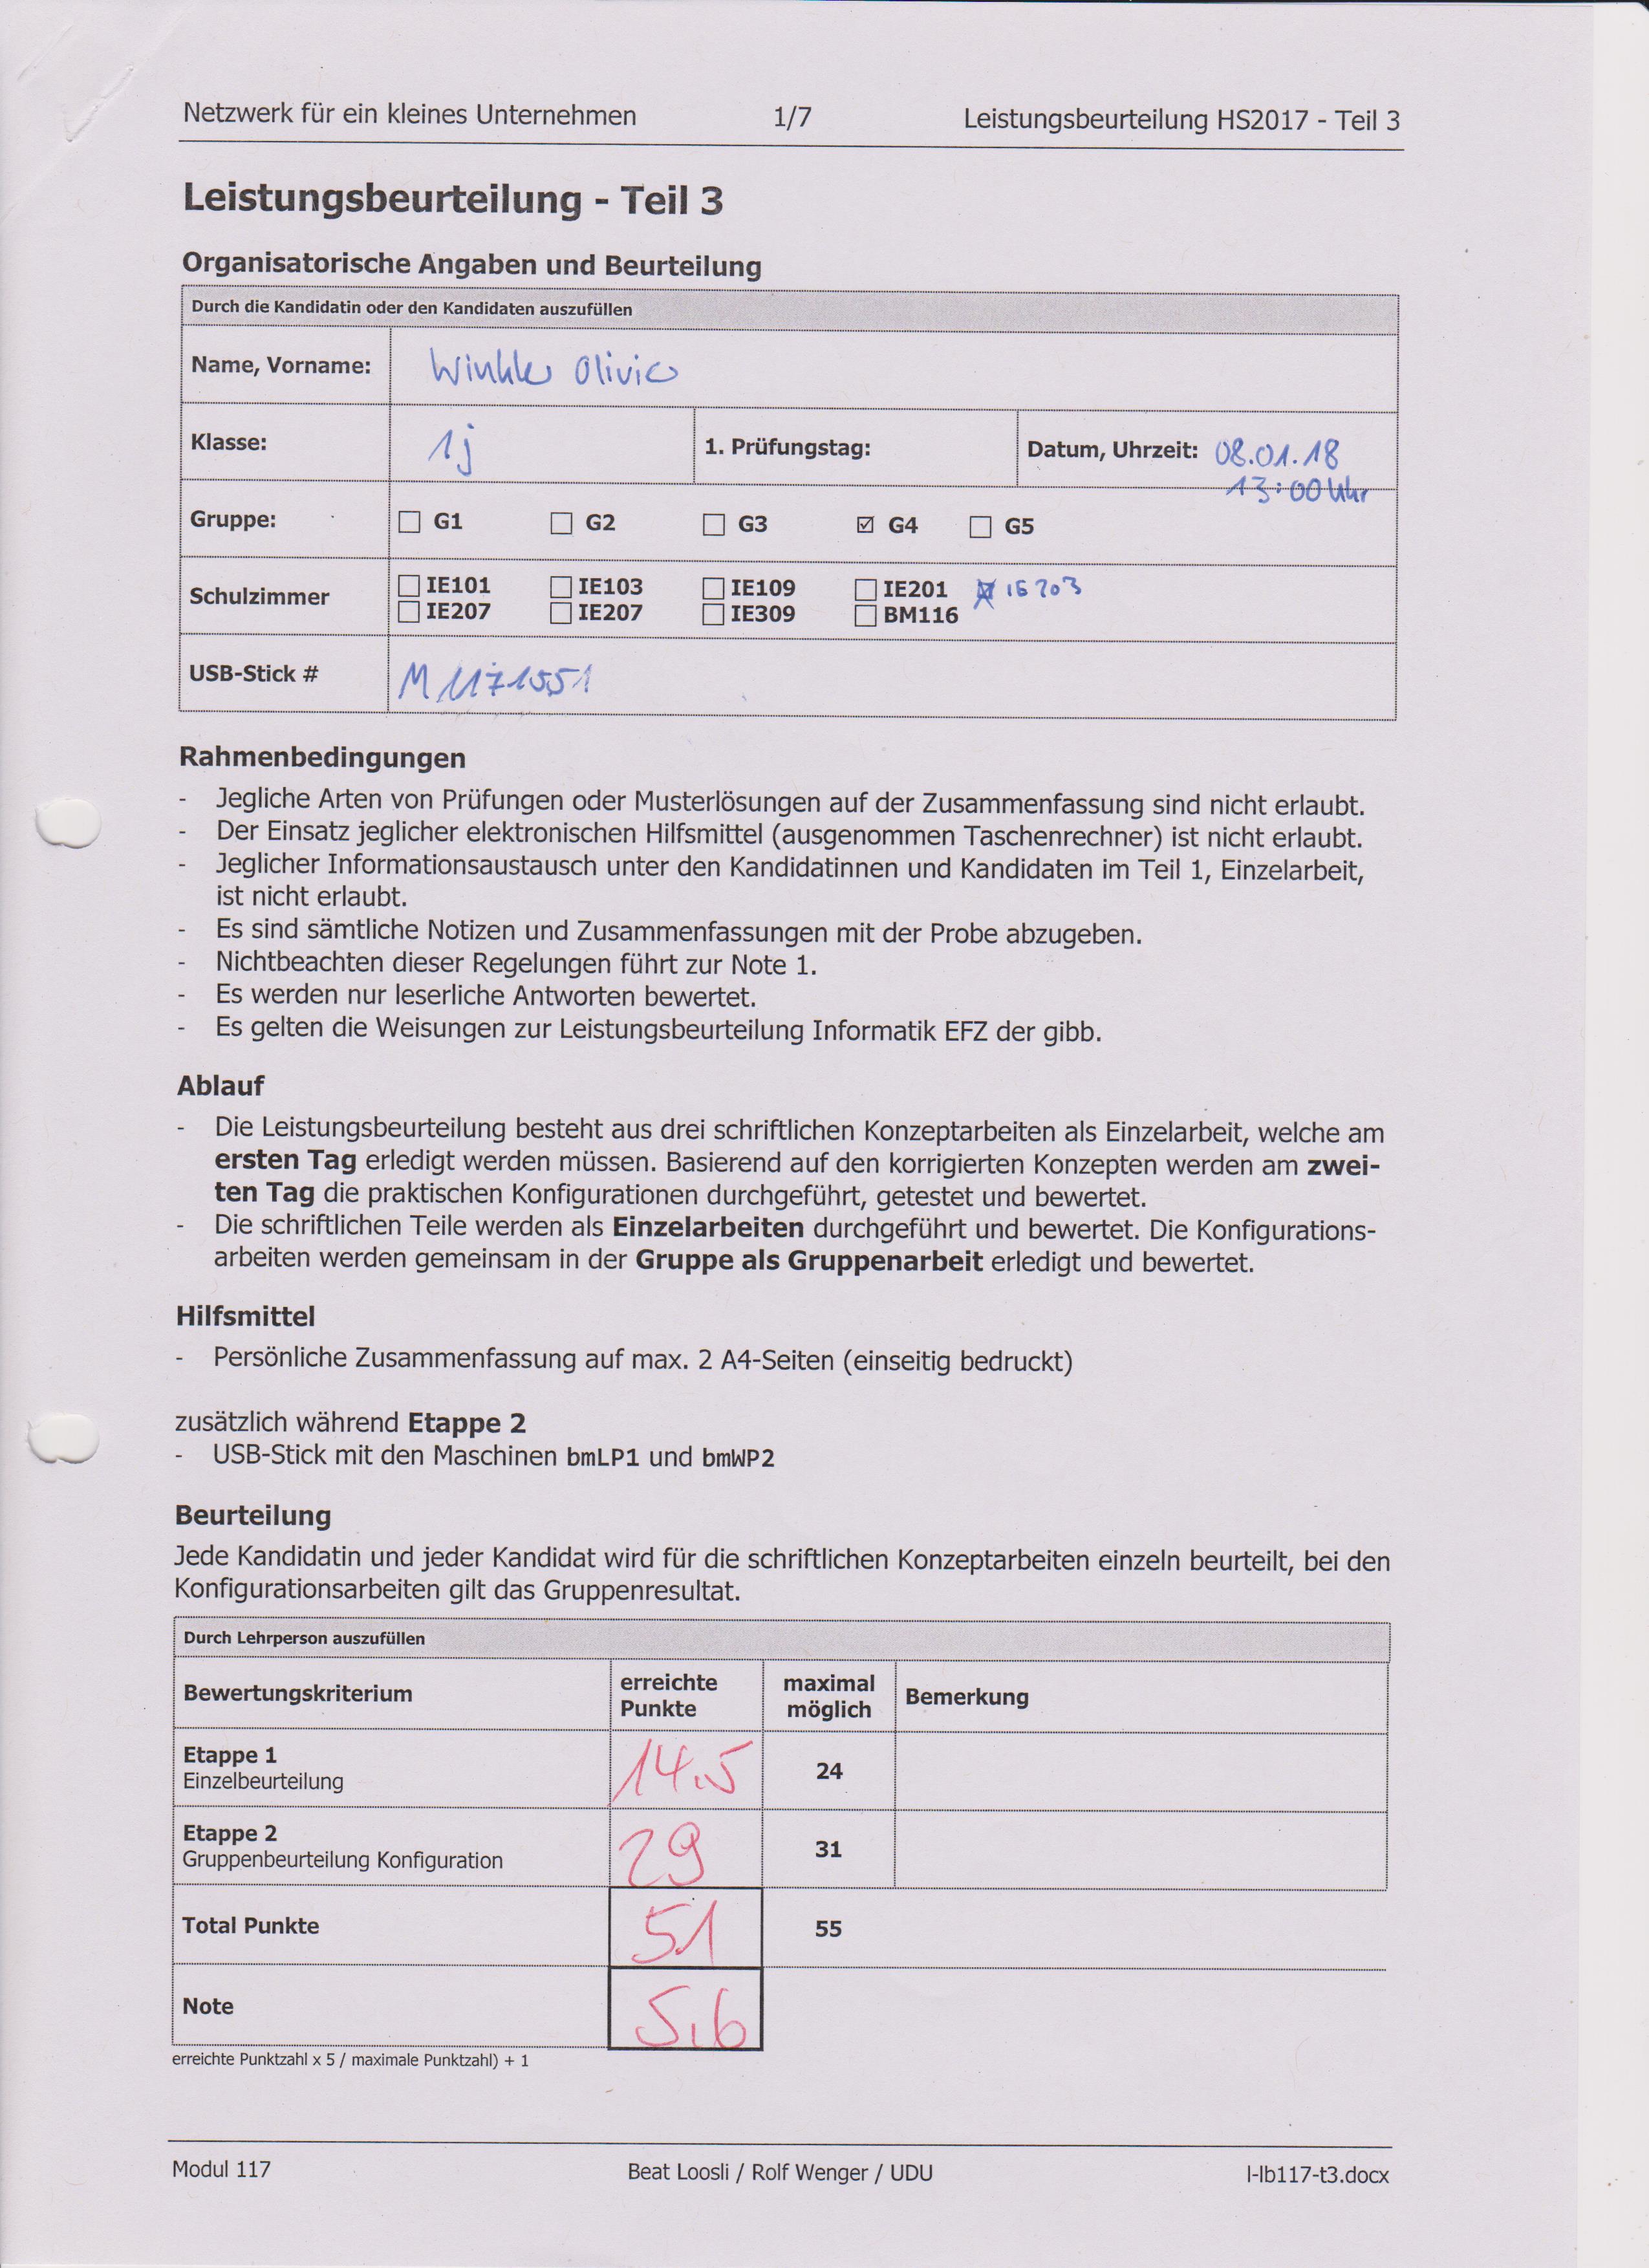 Netzwerk für ein kleines Unternehmen 1/7 Leistungsbeurteilung HS2017 - Teil 3
Leistungsbeurteilung - Teil 3
Organisatorische Angaben und Beurteilung
Durch die Kandidatin oder den Kandidaten auszufüllen
Name, Vorname: Winkler Olivier
Klasse: 1j 1. Prüfungstag: Datum, Uhrzeit: 08.01.18
13:00 Uhr
Gruppe: ☐ G1 ☐ G2 ☐ G3 ☑ G4 ☐ G5
Schulzimmer ☐ IE101 ☐ IE103 ☐ IE109 ☐ IE201 ☒ IE203
☐ IE207 ☐ IE207 ☐ IE309 ☐ BM116
USB-Stick # M1171551
Rahmenbedingungen
- Jegliche Arten von Prüfungen oder Musterlösungen auf der Zusammenfassung sind nicht erlaubt.
- Der Einsatz jeglicher elektronischen Hilfsmittel (ausgenommen Taschenrechner) ist nicht erlaubt.
- Jeglicher Informationsaustausch unter den Kandidatinnen und Kandidaten im Teil 1, Einzelarbeit,
ist nicht erlaubt.
- Es sind sämtliche Notizen und Zusammenfassungen mit der Probe abzugeben.
- Nichtbeachten dieser Regelungen führt zur Note 1.
- Es werden nur leserliche Antworten bewertet.
- Es gelten die Weisungen zur Leistungsbeurteilung Informatik EFZ der gibb.
Ablauf
- Die Leistungsbeurteilung besteht aus drei schriftlichen Konzeptarbeiten als Einzelarbeit, welche am
ersten Tag erledigt werden müssen. Basierend auf den korrigierten Konzepten werden am zwei-
ten Tag die praktischen Konfigurationen durchgeführt, getestet und bewertet.
- Die schriftlichen Teile werden als Einzelarbeiten durchgeführt und bewertet. Die Konfigurations-
arbeiten werden gemeinsam in der Gruppe als Gruppenarbeit erledigt und bewertet.
Hilfsmittel
- Persönliche Zusammenfassung auf max. 2 A4-Seiten (einseitig bedruckt)
zusätzlich während Etappe 2
- USB-Stick mit den Maschinen bmLP1 und bmWP2
Beurteilung
Jede Kandidatin und jeder Kandidat wird für die schriftlichen Konzeptarbeiten einzeln beurteilt, bei den
Konfigurationsarbeiten gilt das Gruppenresultat.
Durch Lehrperson auszufüllen
Bewertungskriterium erreichte Punkte maximal möglich Bemerkung
Etappe 1 14.5 24
Einzelbeurteilung
Etappe 2 29 31
Gruppenbeurteilung Konfiguration
Total Punkte 51 55
Note 5.6
erreichte Punktzahl x 5 / maximale Punktzahl) + 1
Modul 117 Beat Loosli / Rolf Wenger / UDU l-lb117-t3.docx